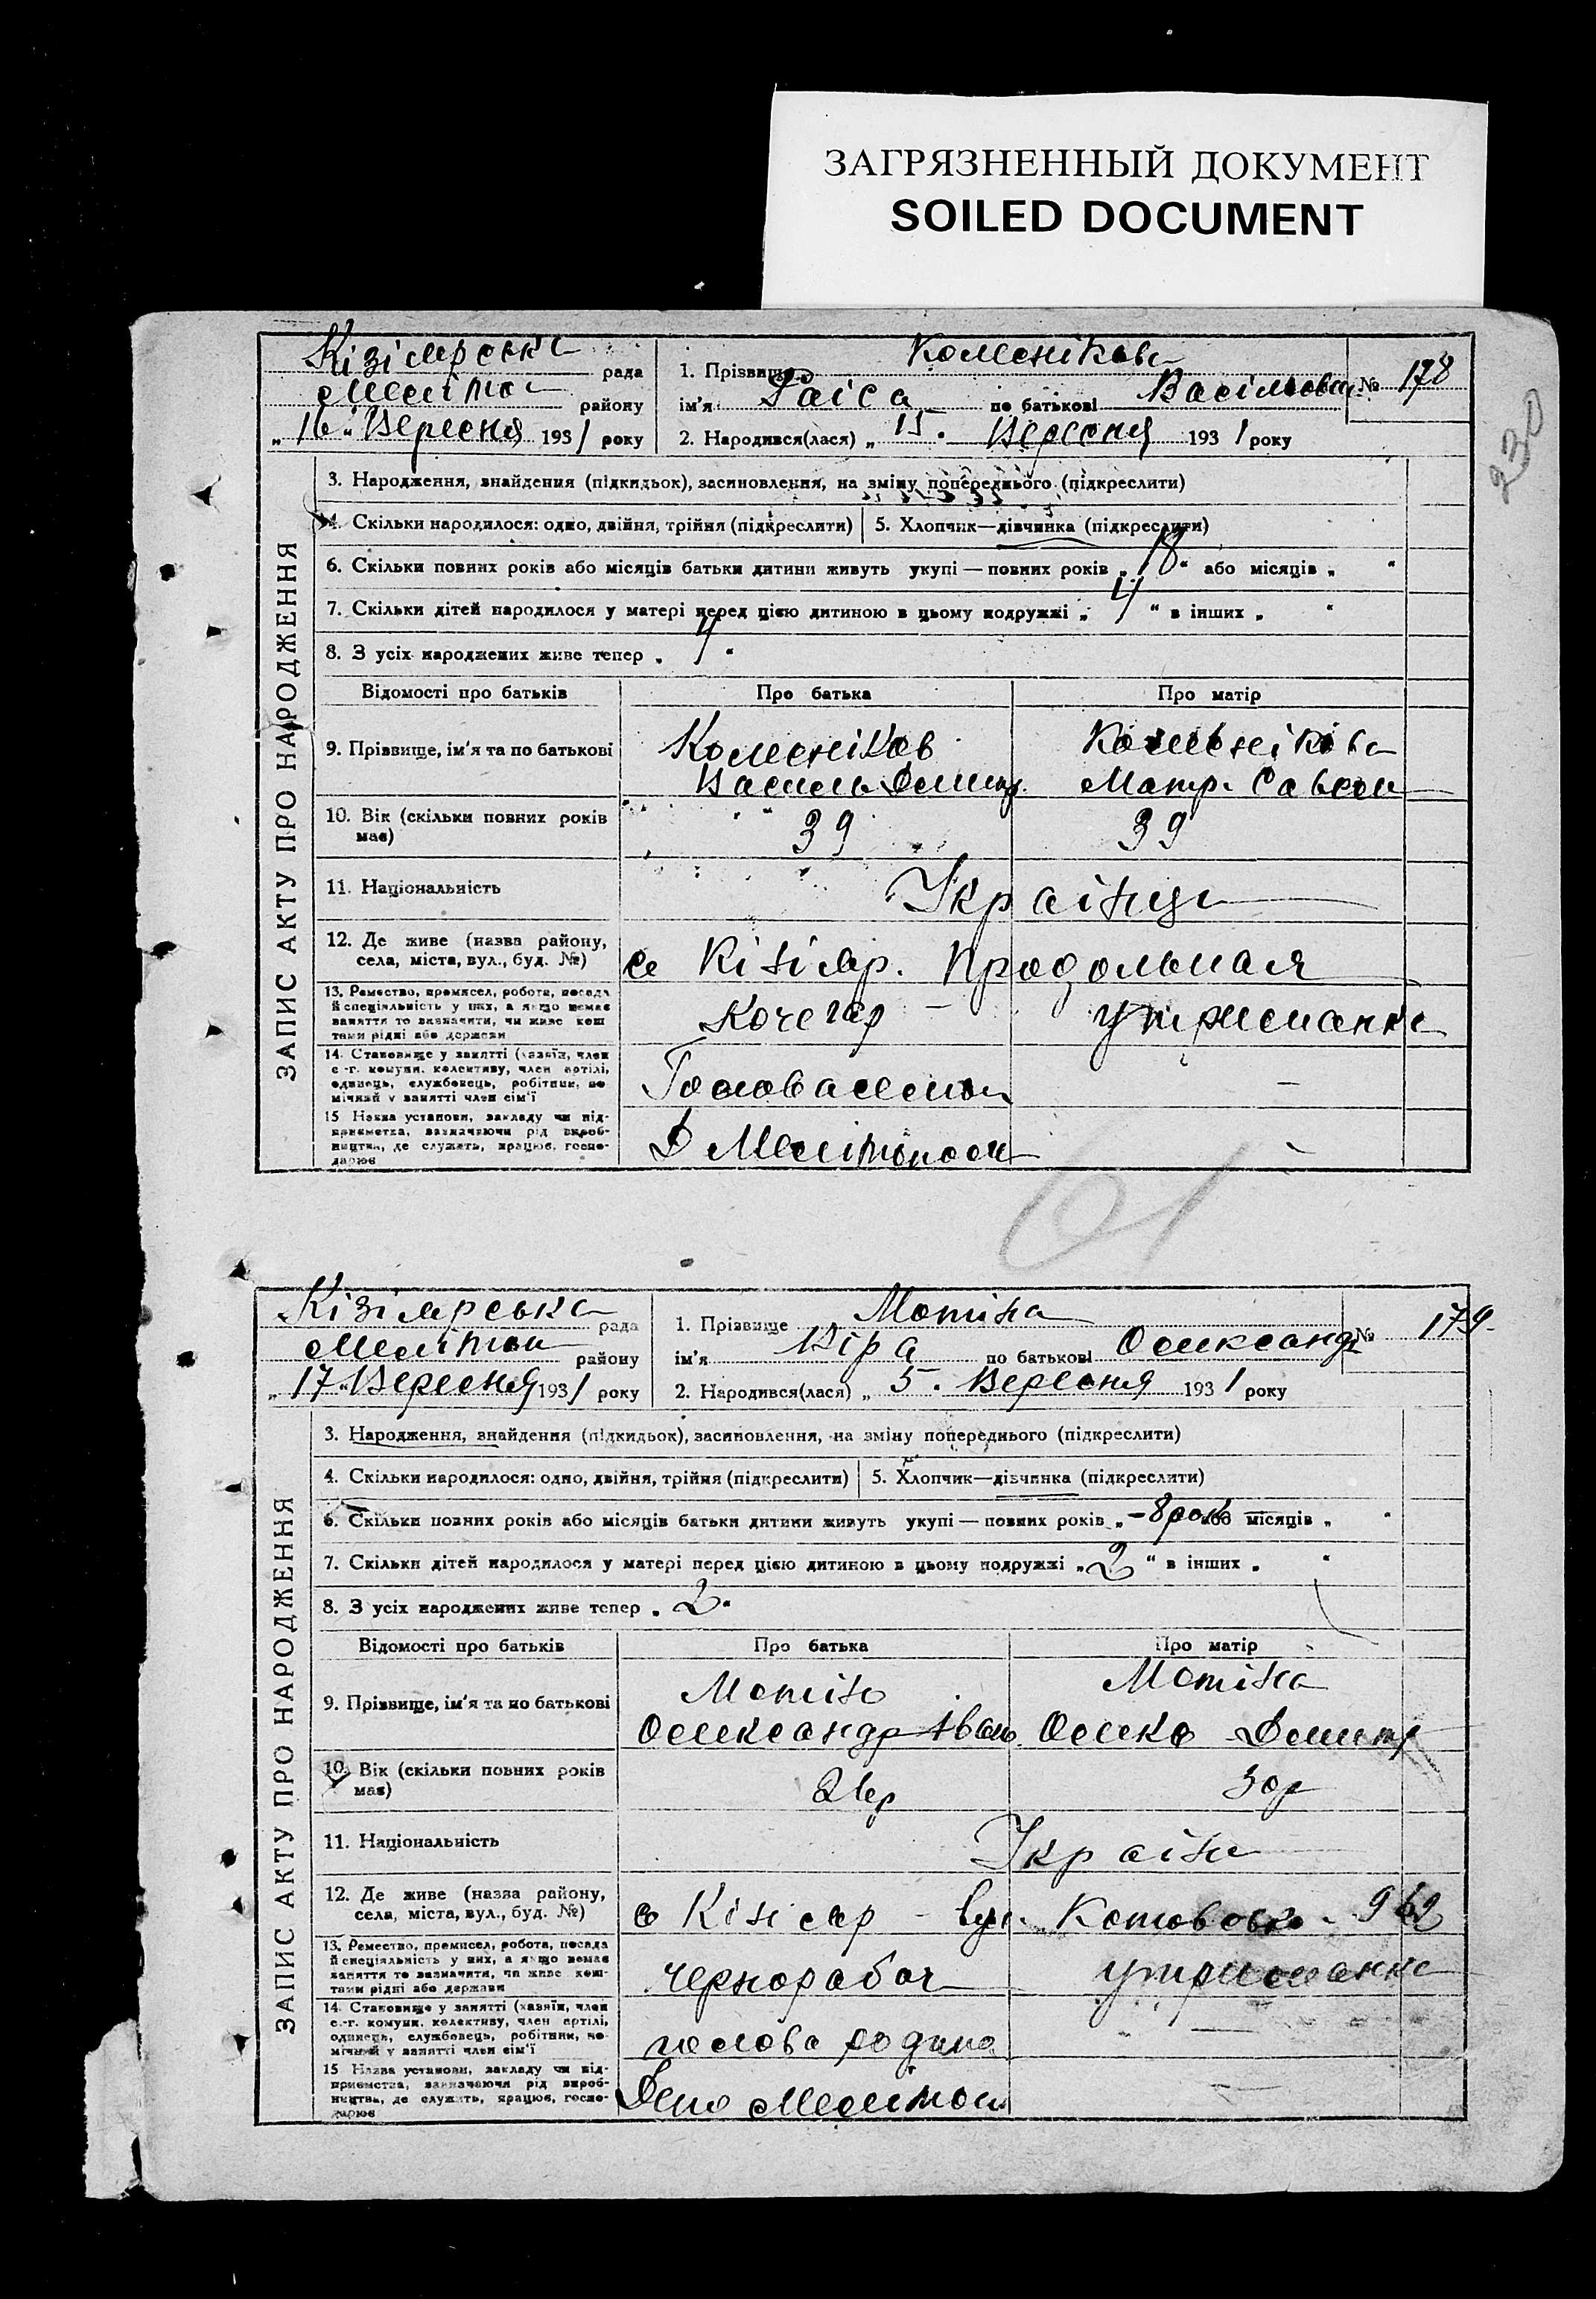 ЗАГРЯЗНЕННЫЙ ДОКУМЕНТ
SOILED DOCUMENT
230
ЗАПИС АКТУ ПРО НАРОДЖЕННЯ
Кізіярська рада
Меліто району
„16“ Вересня 1931 року
1. Прізвище
ім'я Раіса по батькові
№ 178
2. Народився(лася) „15. Вересня 1931 року
3. Народження, знайдення (підкидьок), засиновлення, на зміну попереднього (підкреслити)
4. Скільки народилося: одно, двійня, трійня (підкреслити) 5. Хлопчик—дівчинка (підкреслити)
6. Скільки повних років або місяців батьки дитини живуть укупі — повних років „18“ або місяців „ “
7. Скільки дітей народилося у матері перед цією дитиною в цьому подружжі „4“ в інших „ “
8. З усіх народжених живе тепер „4“
Відомості про батьків Про батька Про матір
9. Прізвище, ім'я та по батькові
Василь Дмитр. Матр. Савел
10. Вік (скільки повних років має) 39 39
11. Національність Українци
12. Де живе (назва району, села, міста, вул., буд. №) с Кізіяр. Продольная
13. Ремество, промисел, робота, посада й спеціяльність у них, а якщо немає заняття то зазначити, чи живе коштами рідні або держави
Кочегар утриманка
14. Становище у занятті (хазяїн, член с.-г. комуни, колективу, член артілі, одинець, службовець, робітник, помічний у занятті член сім'ї
—
15 Назва установи, закладу чи підприємства, зазначаючи рід виробництва, де служить, працює, господарює
Д Мелітополь —
61
ЗАПИС АКТУ ПРО НАРОДЖЕННЯ
Кізіярська рада
Мелітоп району
„17“ Вересня 1931 року
1. Прізвище Мотіна
ім'я Віра по батькові Олександр
№ 179.
2. Народився(лася) „5. Вересня 1931 року
3. Народження, знайдення (підкидьок), засиновлення, на зміну попереднього (підкреслити)
4. Скільки народилося: одно, двійня, трійня (підкреслити) 5. Хлопчик—дівчинка (підкреслити)
6. Скільки повних років або місяців батьки дитини живуть укупі — повних років „—8 рок або місяців „ “
7. Скільки дітей народилося у матері перед цією дитиною в цьому подружжі „2“ в інших „ “
8. З усіх народжених живе тепер „2“
Відомості про батьків Про батька Про матір
9. Прізвище, ім'я та по батькові Мотін Мотіна
Олександр Іван Дмитр
10. Вік (скільки повних років має) 30р
11. Національність Україн
12. Де живе (назва району, села, міста, вул., буд. №) с Кізіяр – вул. Котовсько
13. Ремество, промисел, робота, посада й спеціяльність у них, а якщо немає заняття то зазначити, чи живе коштами рідні або держави
чернорабоч утриманка
14. Становище у занятті (хазяїн, член с.-г. комуни, колективу, член артілі, одинець, службовець, робітник, помічний у занятті член сім'ї
голова родини —
15 Назва установи, закладу чи підприємства, зазначаючи рід виробництва, де служить, працює, господарює
Депо Мелитоп —